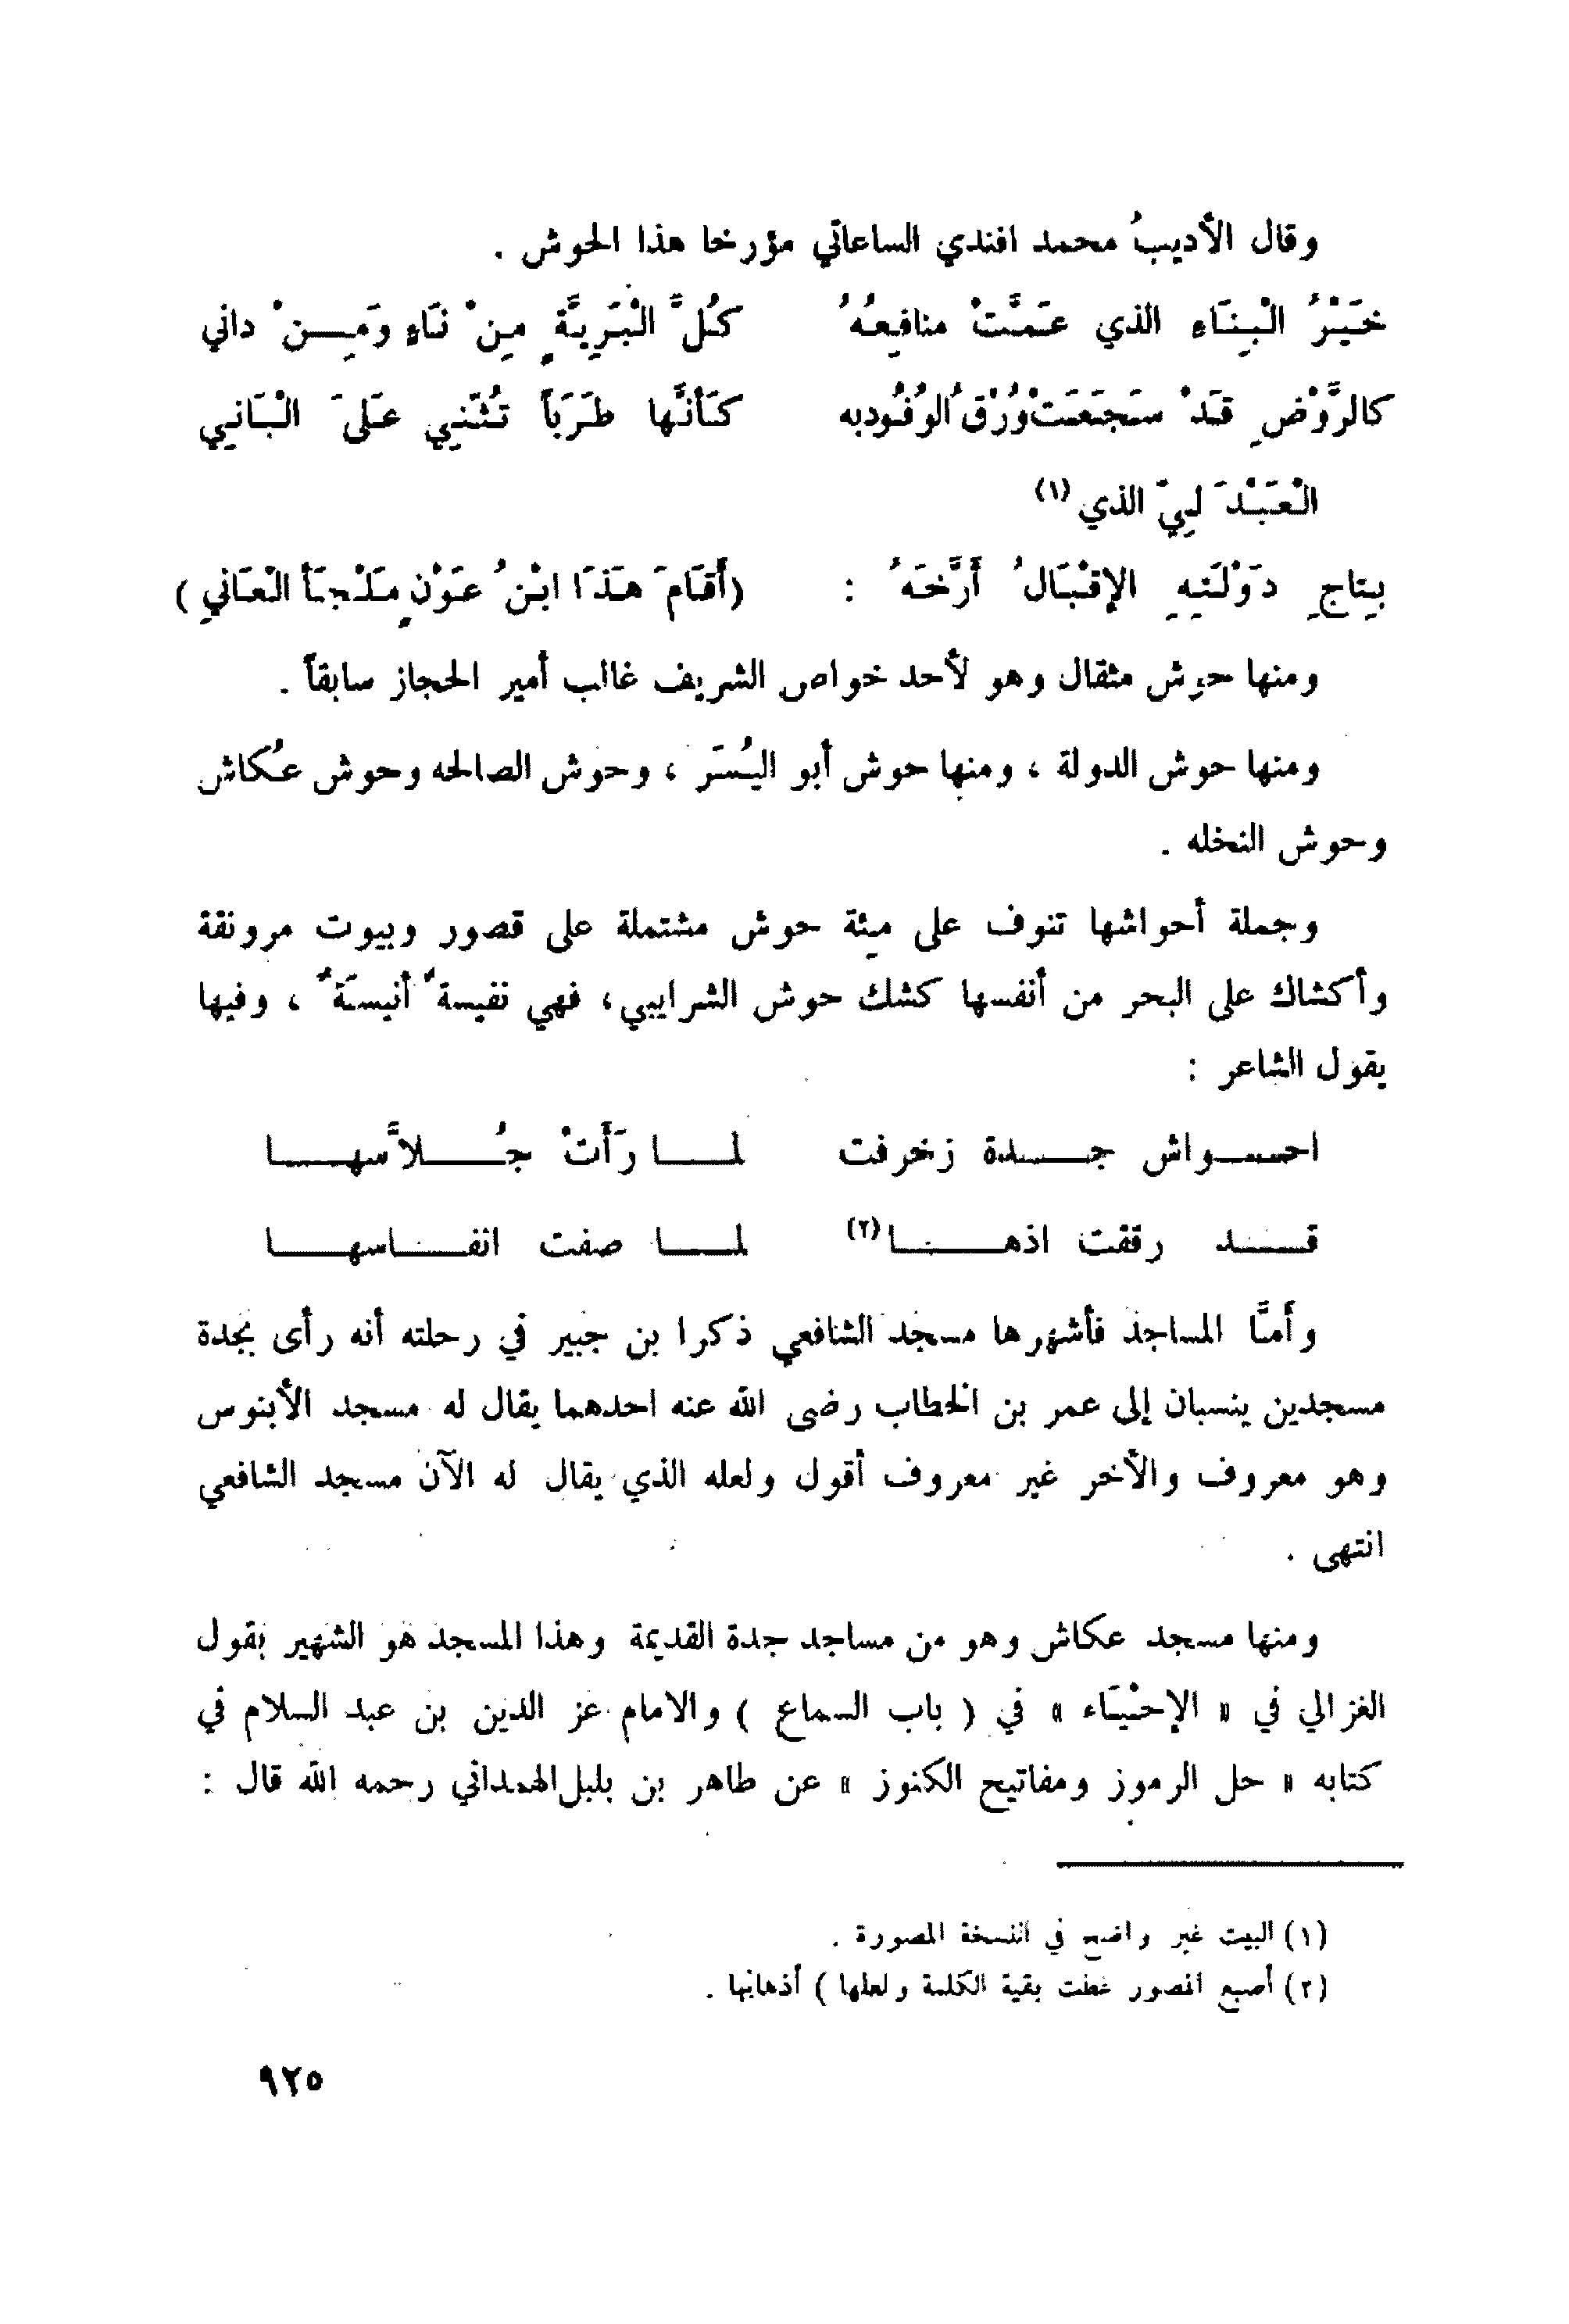 وقال الأديبُ محمد افندي الساعاتي مؤرخا هذا الحوش .
خَيْرُ الْبِنَاءِ الذي عَمَّتْ منافِعُهُ كُلَّ الْبَرِيَّةِ مِنْ نَاءٍ وَمِــنْ داني
كالرَّوْضِ قَدْ سَجَعَتْ وُرْقُ الوُفُودبه كَأنَّها طَرَباً تُثْنِي عَلىَ الْبَانِي
الْعَبْدَ لِيّ الذي (١)
بِتاجِ دَوْلَتِهِ الإقْبَالُ أَرَّخَهُ : (أَقَامَ هَذَا ابْنُ عَوْنٍ مَلْجَأَ الْعَانيِ )
ومنها حوش مثقال وهو لأحد خواص الشريف غالب أمير الحجاز سابقاً .
ومنها حوش الدولة ، ومنها حوش أبو اليُسَر ، وحوش الصالحه وحوش عُكاش
وحوش النخله .
وجملة أحواشها تنوف على مِئة حوش مشتملة على قصور وبيوت مرونقة
وأكشاك على البحر من أنفسها كشك حوش الشرايبي، فهي نفيسة ٌ أنيسَة ٌ ، وفيها
يقول الشاعر :
احــواش جــدة زخرفت لمــا رَأَتْ جُــلاَّسهــا
قــد رققت اذهــنــا(٢) لمــا صفت انفــاسهــا
وأَمَّا المساجد فأشهرها مسجد الشافعي ذكرا بن جبير في رحلته أنه رأى بجدة
مسجدين ينسبان إلى عمر بن الخطاب رضى الله عنه احدهما يقال له مسجد الأبنوس
وهو معروف والأخر غير معروف أقول ولعله الذي يقال له الآن مسجد الشافعي
انتهى .
ومنها مسجد عكاش وهو من مساجد جدة القديمة وهذا المسجد هو الشهير بقول
الغزالي في « الإحْيَاء » في ( باب السماع ) والامام عز الدين بن عبد السلام في
كتابه « حل الرموز ومفاتيح الكنوز » عن طاهر بن بلبل الهمداني رحمه الله قال :
(١) البيت غير واضح في النسخة المصورة .
(٢) أصبع المصور غطت بقية الكلمة ولعلها ) أذهانها .
٩٢٥